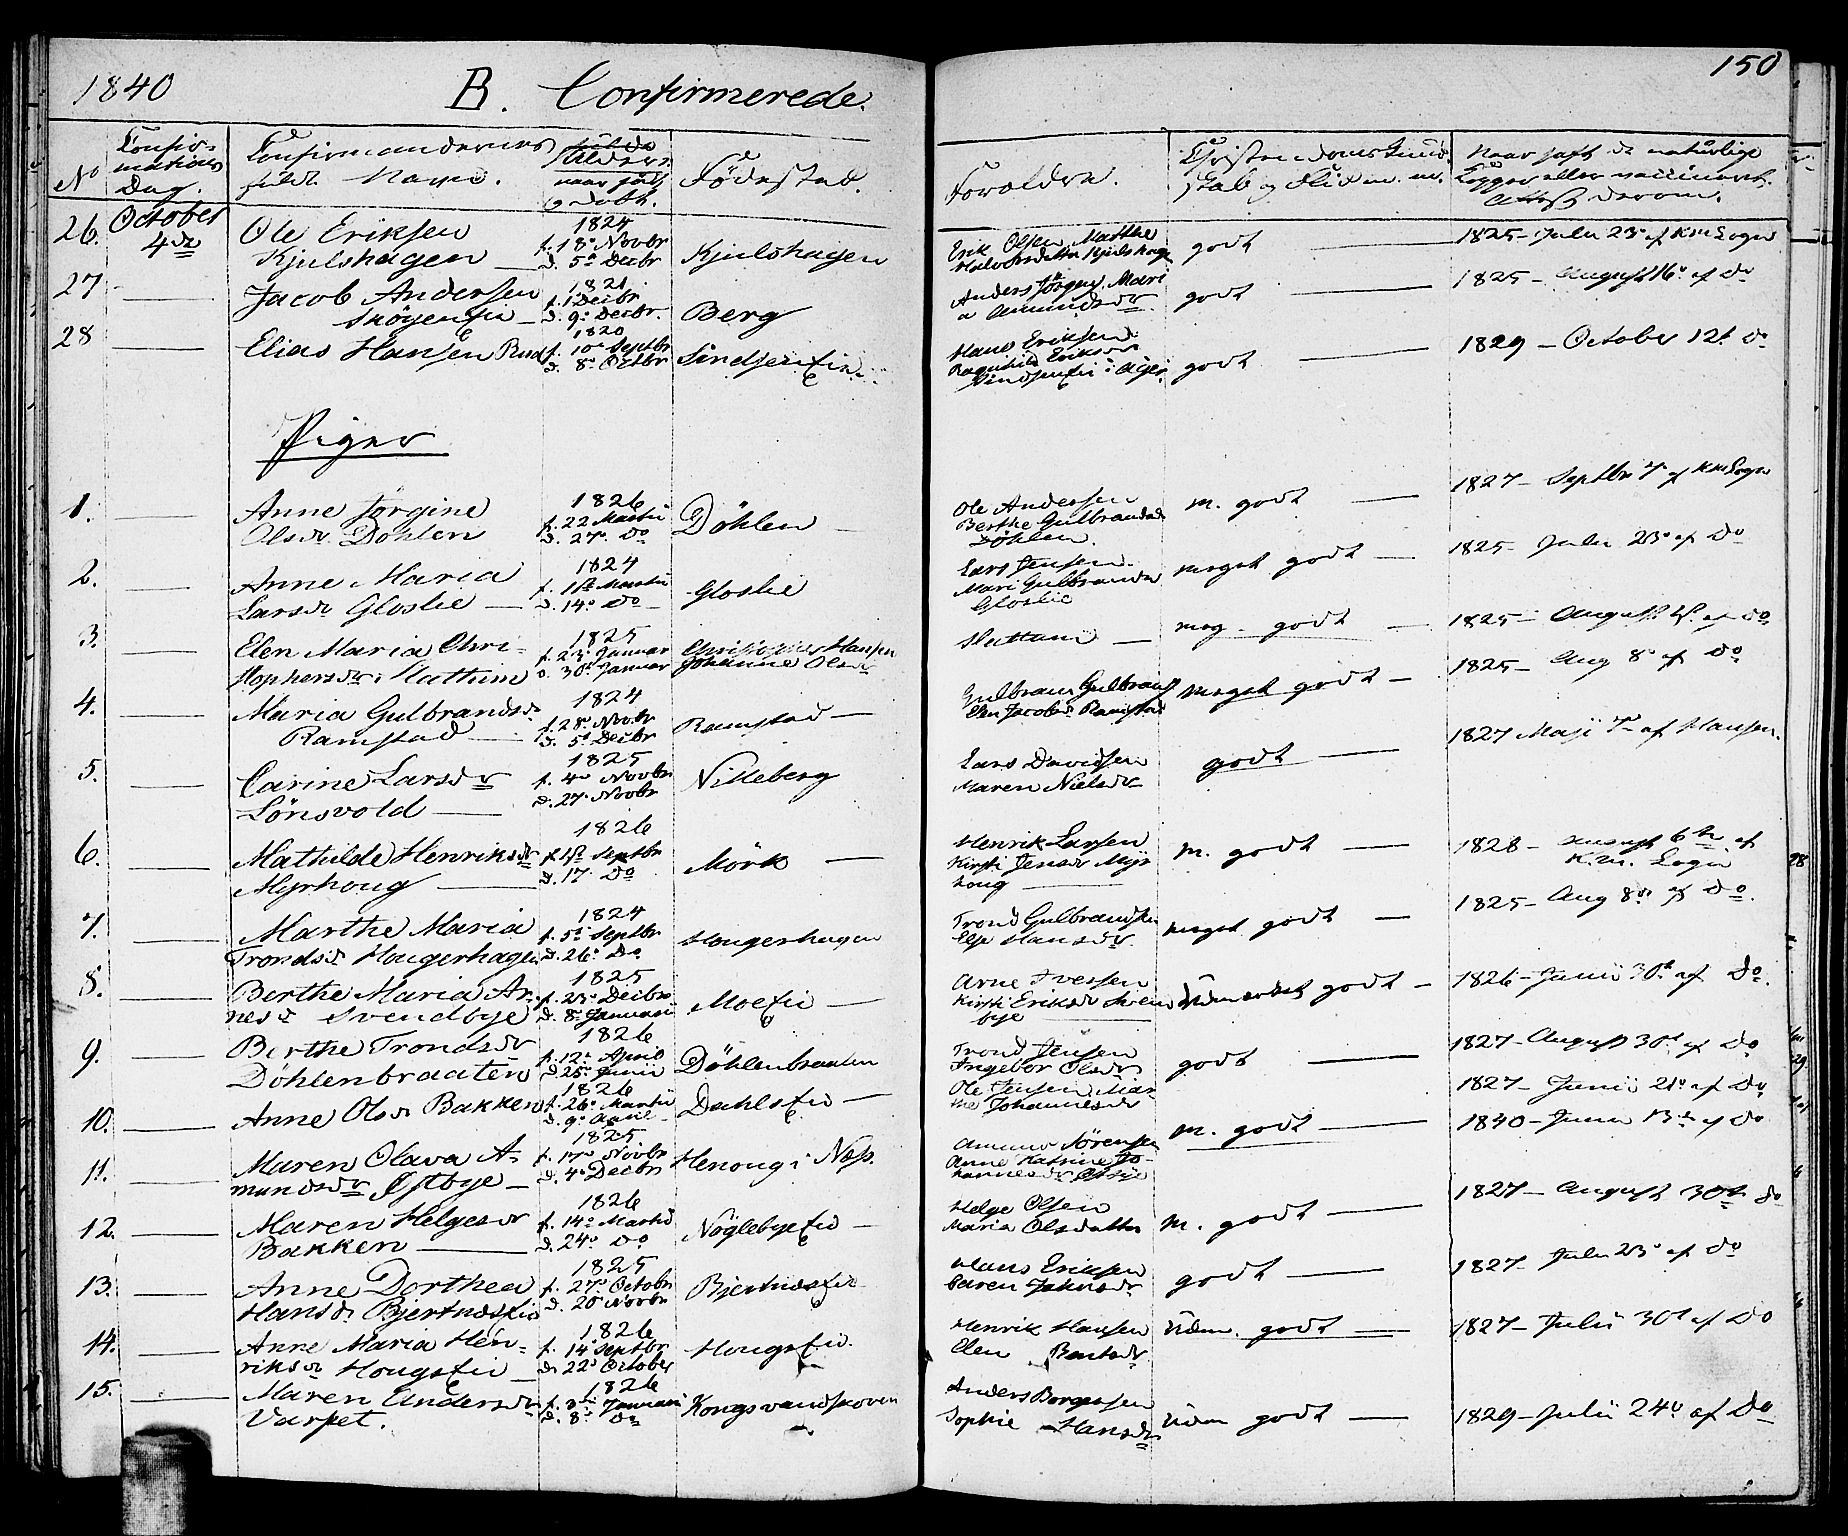 1840 B. Confirmerede.
150
No Confir-
mations
Dag.
Confirmandernes
fulde Navne.
Alder
naar født
og døbt.
Fødested.
Forældre.
Christendoms Kund-
skab og Flid m. m.
Naar haft de naturlige
Kopper eller vaccineret.
Attest derom.
26. October 4de Ole Eriksen
Kjulshagen
1824
f. 18e Novbr
d. 5te Decbr
Kjulshagen
Erik Olsen Mathea
Halvorsdatter Kjulshagen
godt
1825 - Julii 23e af KmSogn
27 Jacob Andersen
Skøyenfie
1821
f. 1 Decbr
d. 9e Decbr.
Berg
Anders Jørgens. Mari
Amundsdr
godt
1825 - August 16e af do
28 Elias Hansen Rud
1820
f. 10e Septbr
d. 8e Octbr
Hans Eriksen
Ragnhild Eriksdr
godt
1829 - October 12t do
Piger
1. Anne Jørgine
Olsdr Döhlen
1826
f. 22 Martii
d. 27e do
Döhlen
Ole Andersen
Berthe Gulbrandsd
Döhlen.
m. godt
1827 - Septbr 7e af KmSogn
2. Anne Maria
Larsdr Gloslie
1824
f. 1ste Martii
d. 14e do
Gloslie
Lars Jensen
Mari Gulbrandsd
Gloslie
meget godt
1825 - Julii 23e af do
3. Elen Maria Chri-
stophersdr Hattum
1825
f. 23e Januar
d. 30te Januar
Christopher Hansen
Johanne Olsdr
Hattum
meg. godt
1825 - August af do
4. Maria Gulbrandsdr
Ramstad
1824
f. 28e Novbr
d. 5te Decbr
Ramstad
Gulbran Gulbrands
Elen Jacobsd Ramstad
meget godt
1825 - Aug 8e af do
5. Carine Larsdr
Lönsvold
1825
f. 4de Novbr
d. 27e Novbr
Nilleberg
Lars Davidsen
Maren Nielsdr
godt
1827 Maji 7de af Hansen.
6. Mathilde Henriksdr
Myrhoug
1826
f. 1ste Septbr
d. 17e do
Mörk
Henrik Larsen
Kirsti Jensdr Myr
houg
m. godt
1828 - August 6te af
K.m. Sogn
7. Marthe Maria
Trondsd Hougerhagen
1824
f. 5te Septbr
d. 26e do
Hougerhagen
Trond Gulbrandsen
Else Hansdr
meget godt
1825 - Aug 8de af do.
8. Berthe Maria Ar-
nesd Svendbye
1825
f. 23e Decbr
d. 8e Januarii
Moefie
Arne Iversen
Kirsti Eriksdr Svend
bye
Udmærket godt
1826 - Junii 30te af do.
9. Berthe Trondsdr
Döhlenbraaten
1826
f. 12te April
d. 25e Junii
Döhlenbraaten
Trond Jensen
Ingebor Olsdr
godt
1827 - August 30te af do
10. Anne Olsdr Bakken
1826
f. 26e Martii
d. 9e April
Dahlsfie
Ole Jensen Mar-
the Johannesdr
m. godt
1827 - Junii 21e af do
11. Maren Olava A-
mundsdr Østbye
1825
f. 17de Novbr
d. 4e Decbr
Henoug i Næs.
Amund Sörensen
Anne Katrine Jo-
hannesdr Østbye
1840 - Junii 13de af do
12. Maren Helgesdr
Bakken
1826
f. 14e Martii
d. 24e do
Nöglebyefie
Helge Olsen
Maria Olsdatter
m. godt
1827 - August 30te do
13. Anne Dorthea
Hansdr Bjertnæsfie
1825
f. 27de Octobr
d. 20 Novbr
Bjertnæsfie
Hans Eriksen
Karen Jahnsdr
godt
1827 - Julii 23e af do
14. Anne Maria Hen-
riksdr Hougsfie
1826
f. 14e Septbr
d. 22e October
Hougsfie
Henrik Hansen
Elen Bentsdr
Udm. godt
1827 - Julii 30te af do
15. Maren Andersdr
Varpet.
1826
f. 3die Januarii
d. 8e do
Kongsvandskoven
Anders Borgersen
Sophie Hansdr
Udm godt
1829 - Julii 24e af do